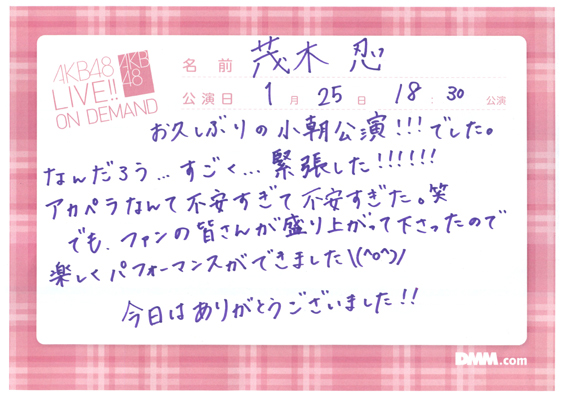 AKB48
LIVE!!
ON DEMAND
AKB
48
名前 茂木 忍
公演日 1月25日 18:30公演
お久しぶりの小朝公演!!!でした。
なんだろう…すごく…緊張した!!!!!!
アカペラなんて不安すぎて不安すぎた。笑
でも、ファンの皆さんが盛り上がって下さったので
楽しくパフォーマンスができました\(^o^)/
今日はありがとうございました!!
DMM.com